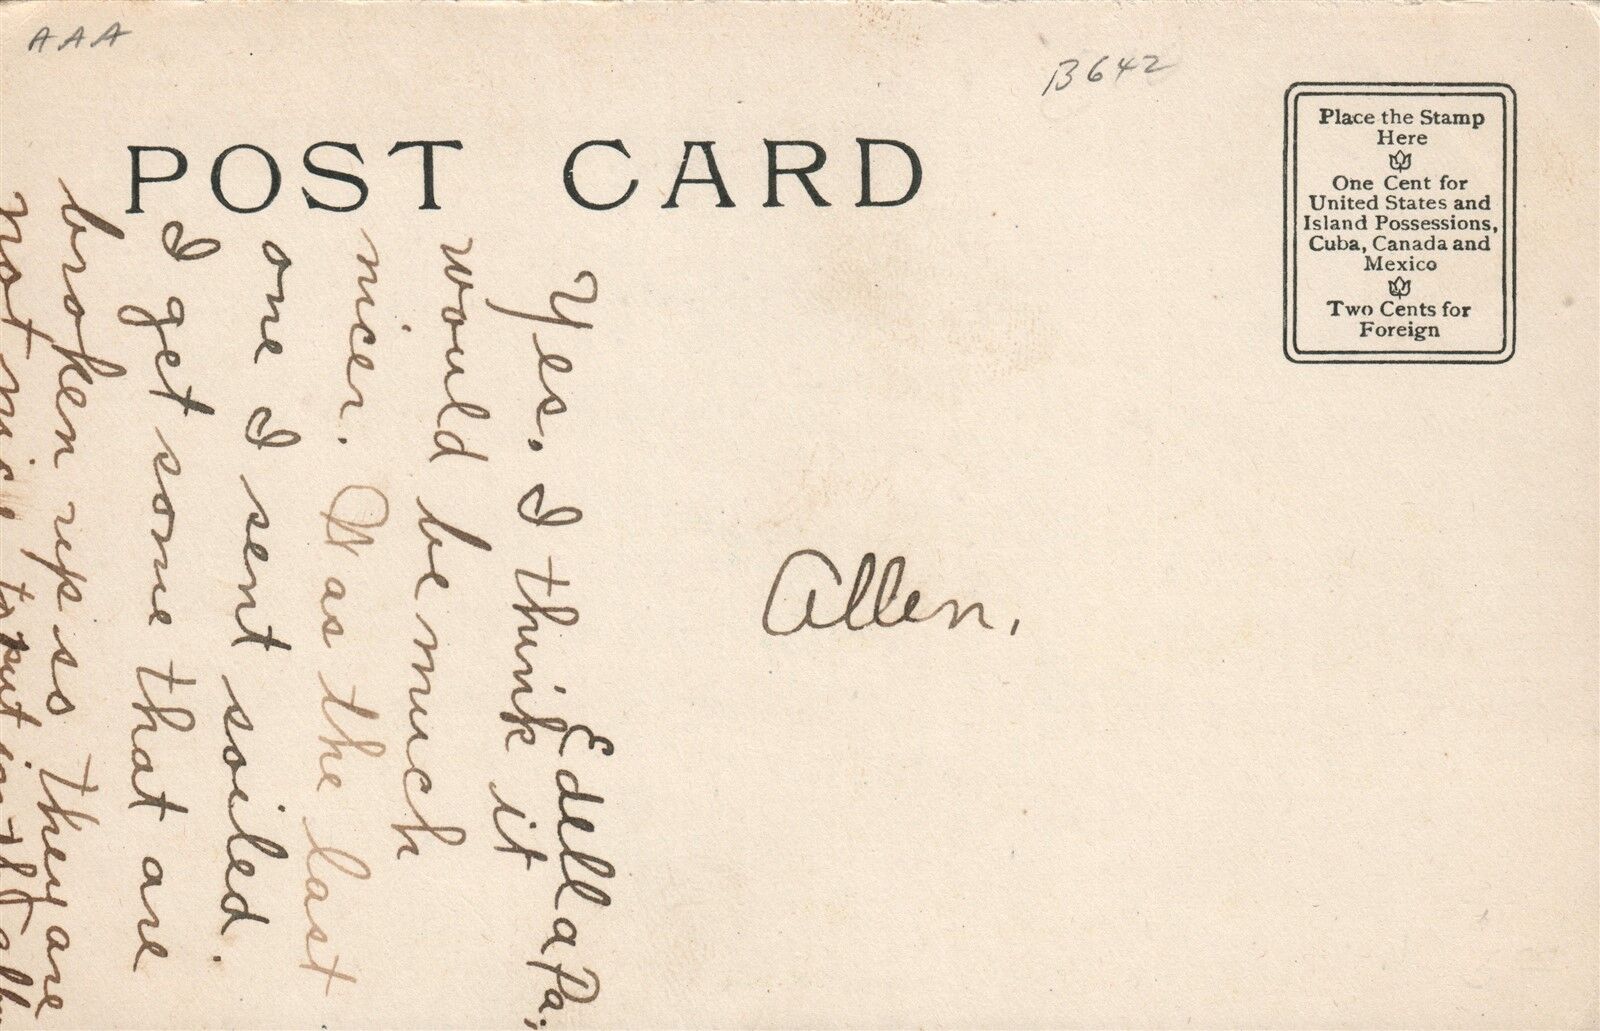 AAA
B642
POST CARD
Place the Stamp
Here
One Cent for
United States and
Island Possessions,
Cuba, Canada and
Mexico
Two Cents for
Foreign
Edella Pa.,
Yes. I think it
would be much
nicer. Was the last
one I sent soiled.
I get some that are
broken up so they are
not nice to put in the
Allen.